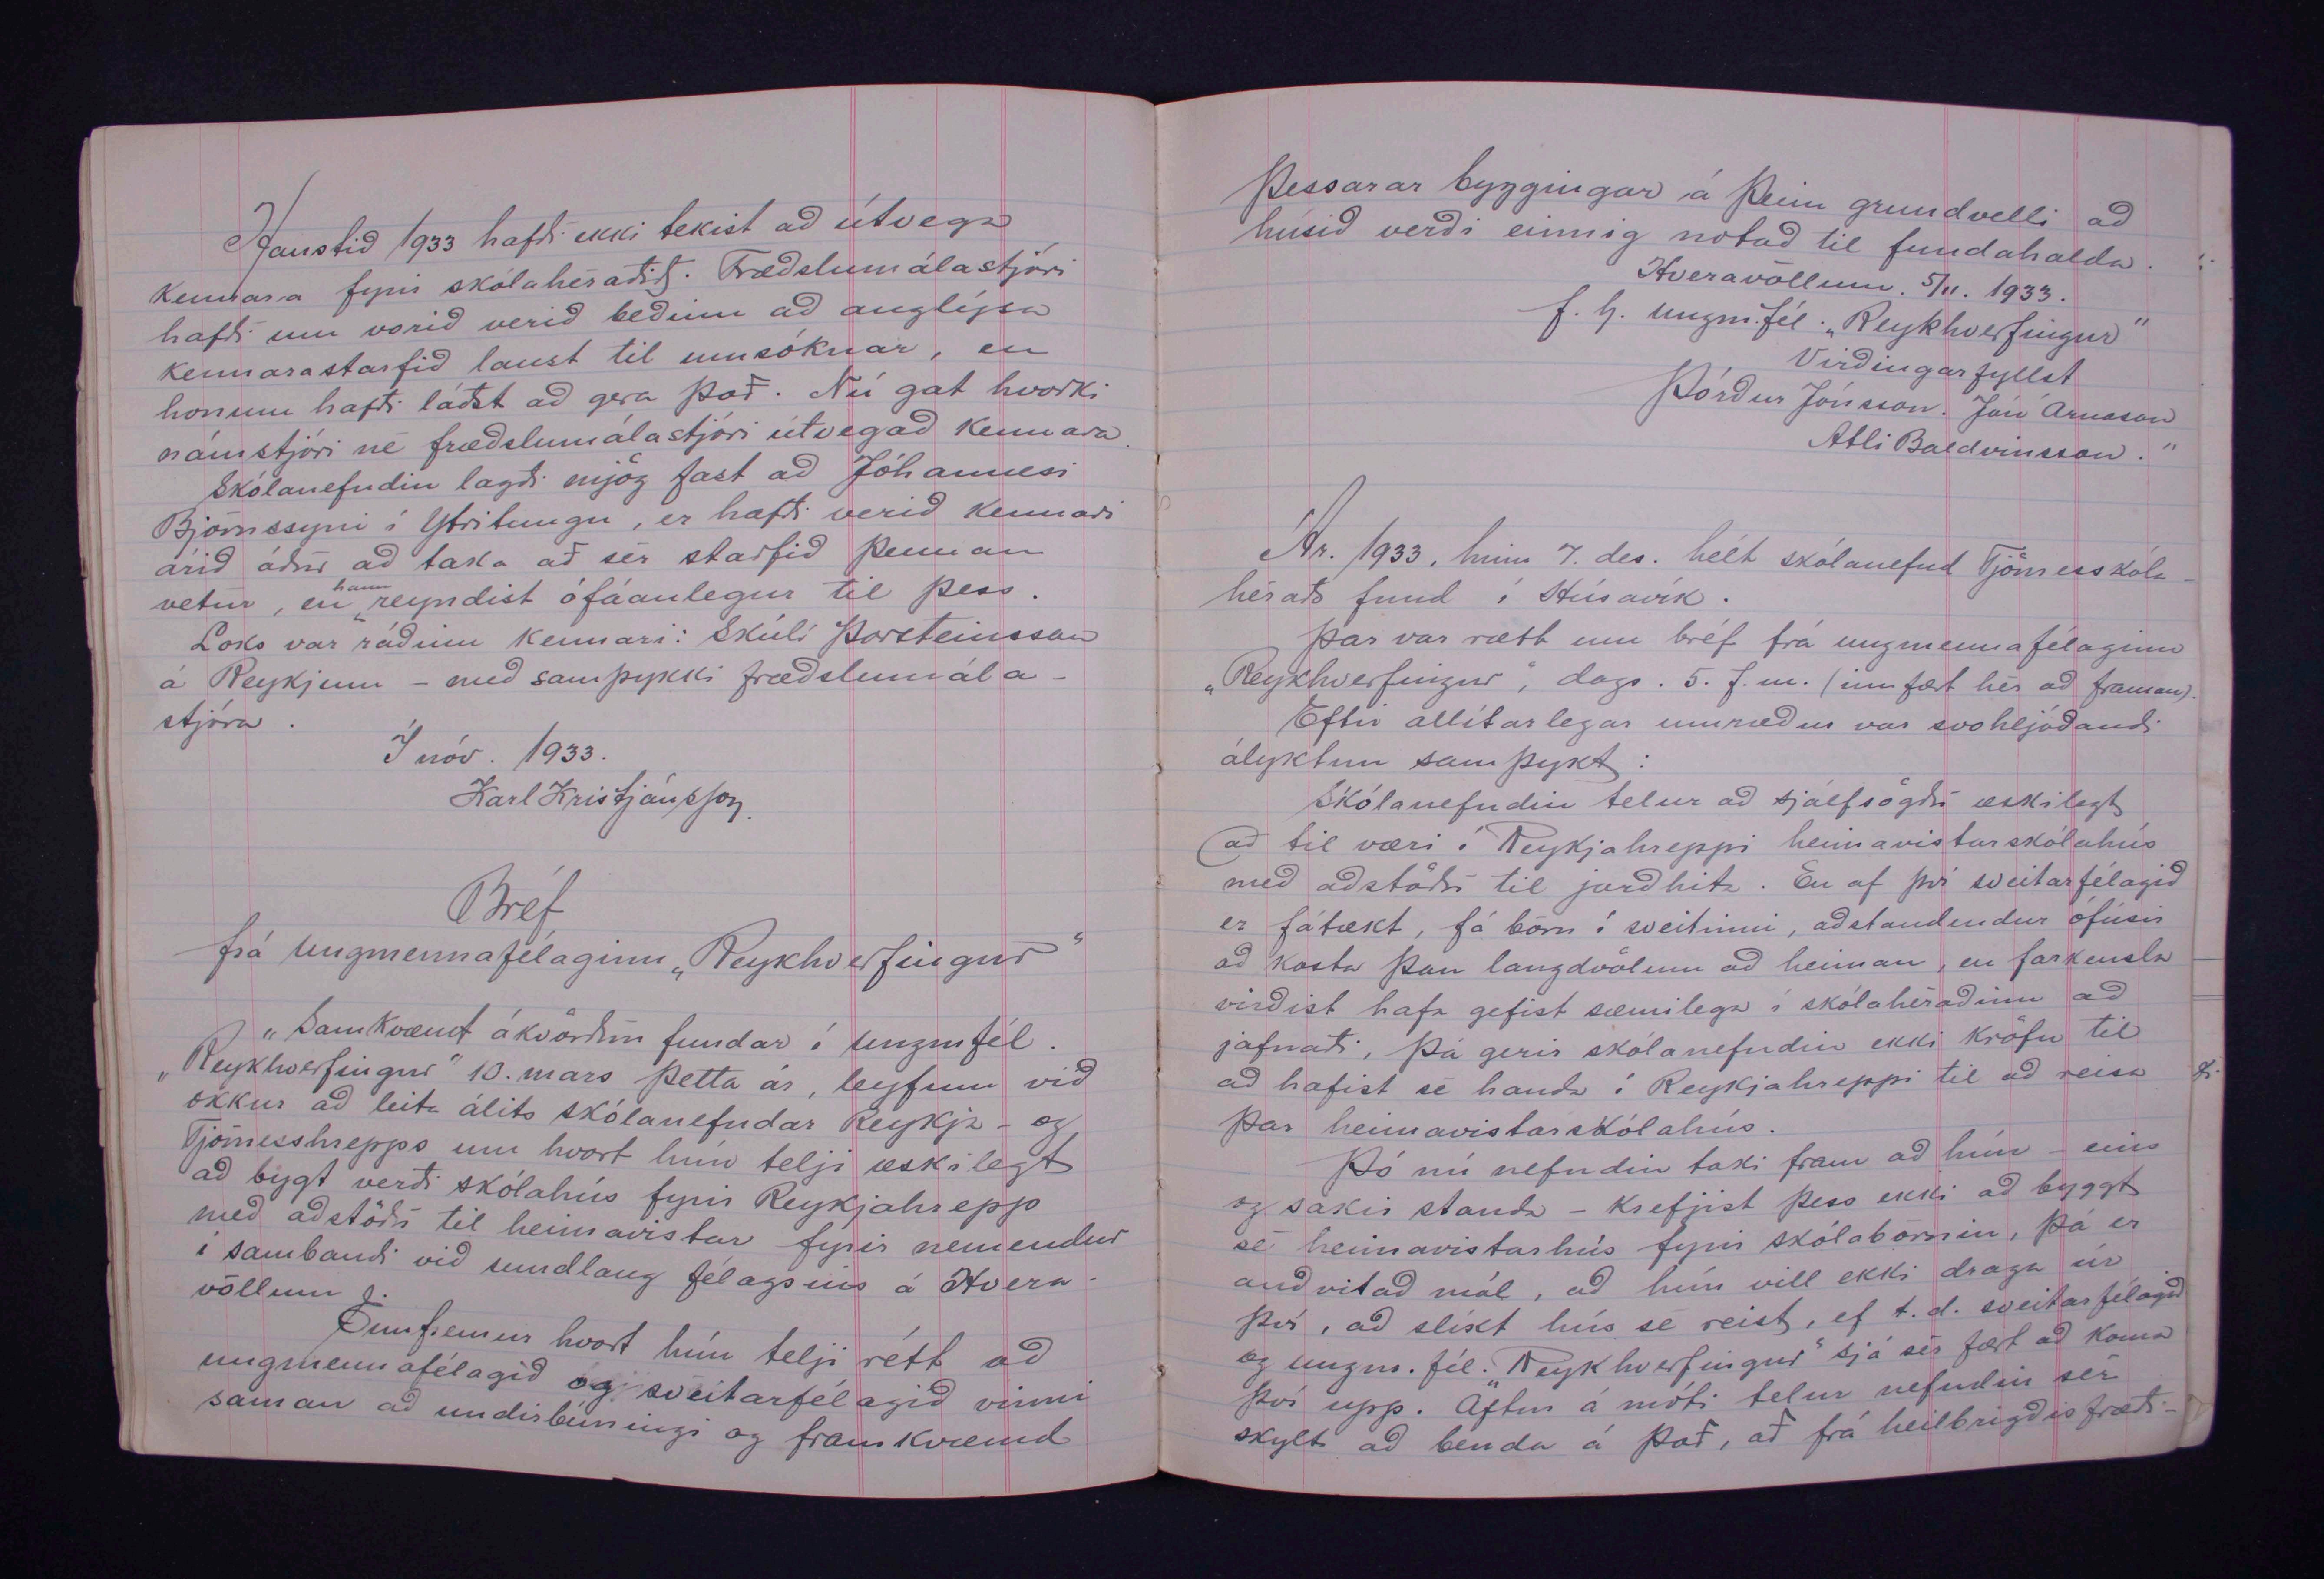 Haustið 1933 hafði ekki tekist að útvega
kennara fyrir skólahéraðið. Fræðslumálastjóri
hafði um vorið verið beðinn að auglýsa
kennarastarfið laust til umsóknar, en
honum hafði láðst að gera það. Nú gat hvorki
námstjóri né fræðslumálastjóri útvegað kennara.
Skólanefndin lagði mjög fast að Jóhannesi
Björnssyni í Ytritungu, er hafði verið kennari
árið áður að taka að sér starfið þennan
vetur, en hann reyndist ófáanlegur til þess.
Loks var ráðinn kennari: Skúli Þorsteinsson
á Reykjum - með samþykki fræðslumála-
stjóra.
Í nóv. 1933.
Karl Kristjánsson.
Bréf
frá Ungmennafélaginu „Reykhverfingur"
„Samkvæmt ákvörðun fundar í ungmfél.
„Reykhverfingur" 10. mars þetta ár, leyfum við
okkur að leita álits skólanefndar Reykja- og
Tjörnesshrepps um hvort hún telji æskilegt
að bygt verði skólahús fyrir Reykjahrepp
með aðstöðu til heimavistar fyrir nemendur
í sambandi við sundlaug félagsins á Hvera-
völlum.
Ennfremur hvort hún telji rétt að
ungmennafélagið og sveitarfélagið vinni
saman að undirbúningi og framkvæmd
þessarar byggingar á þeim grundvelli að
húsið verði einnig notað til fundahalda.
Hveravöllum. 5/11. 1933.
f. h. ungm.fél. „Reykhverfingur"
Virðingarfyllst
Þórður Jónsson. Jón Árnason
Atli Baldvinsson."
Ár. 1933, hinn 7. des. hélt skólanefnd Tjörnesskóla-
héraðs fund í Húsavík.
Þar var rætt um bréf frá ungmennafélaginu
„Reykhverfingur", dags. 5. f.m. (innfært hér að framan).
Eftir allítarlegar umræður var svohljóðandi
ályktun samþykt:
Skólanefndin telur að sjálfsögðu æskilegt
að til væri í Reykjahreppi heimavistarskólahús
með aðstöðu til jarðhita. En af því sveitarfélagið
er fátækt, fá börn í sveitinni, aðstandendur ófúsir
að kosta þau langdvölum að heiman, en farkensla
virðist hafa gefist sæmilega í skólahéraðinu að
jafnaði, þá gerir skólanefndin ekki kröfu til
að hafist sé handa í Reykjahreppi til að reisa
þar heimavistarskólahús.
Þó nú nefndin taki fram að hún - eins
og sakir standa - krefjist þess ekki að byggt
sé heimavistarhús fyrir skólabörnin, þá er
auðvitað mál, að hún vill ekki draga úr
því, að slíkt hús sé reist, ef t.d. sveitarfélagið
og ungm. fél. „Reykhverfingur" sjá sér fært að koma
því upp. Aftur á móti telur nefndin sér
skylt að benda á það, að frá heilbrigðisfræði-